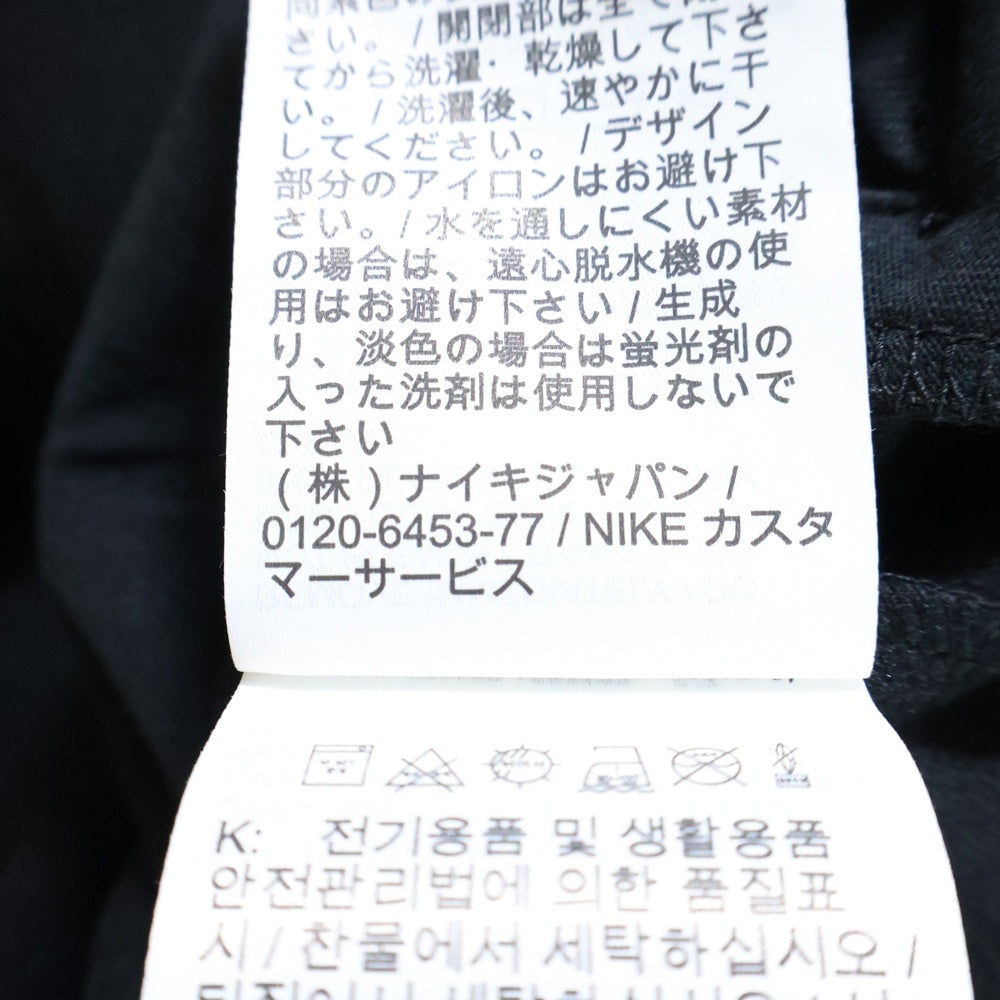 さい。/開閉部は全て
てから洗濯・乾燥して下さ
い。/洗濯後、速やかに干
してください。/デザイン
部分のアイロンはお避け下
さい。/水を通しにくい素材
の場合は、遠心脱水機の使
用はお避け下さい/生成
り、淡色の場合は蛍光剤の
入った洗剤は使用しないで
下さい
(株)ナイキジャパン/
0120-6453-77 / NIKE カスタ
マーサービス
K: 전기용품 및 생활용품
안전관리법에 의한 품질표
시 / 찬물에서 세탁하십시오 /